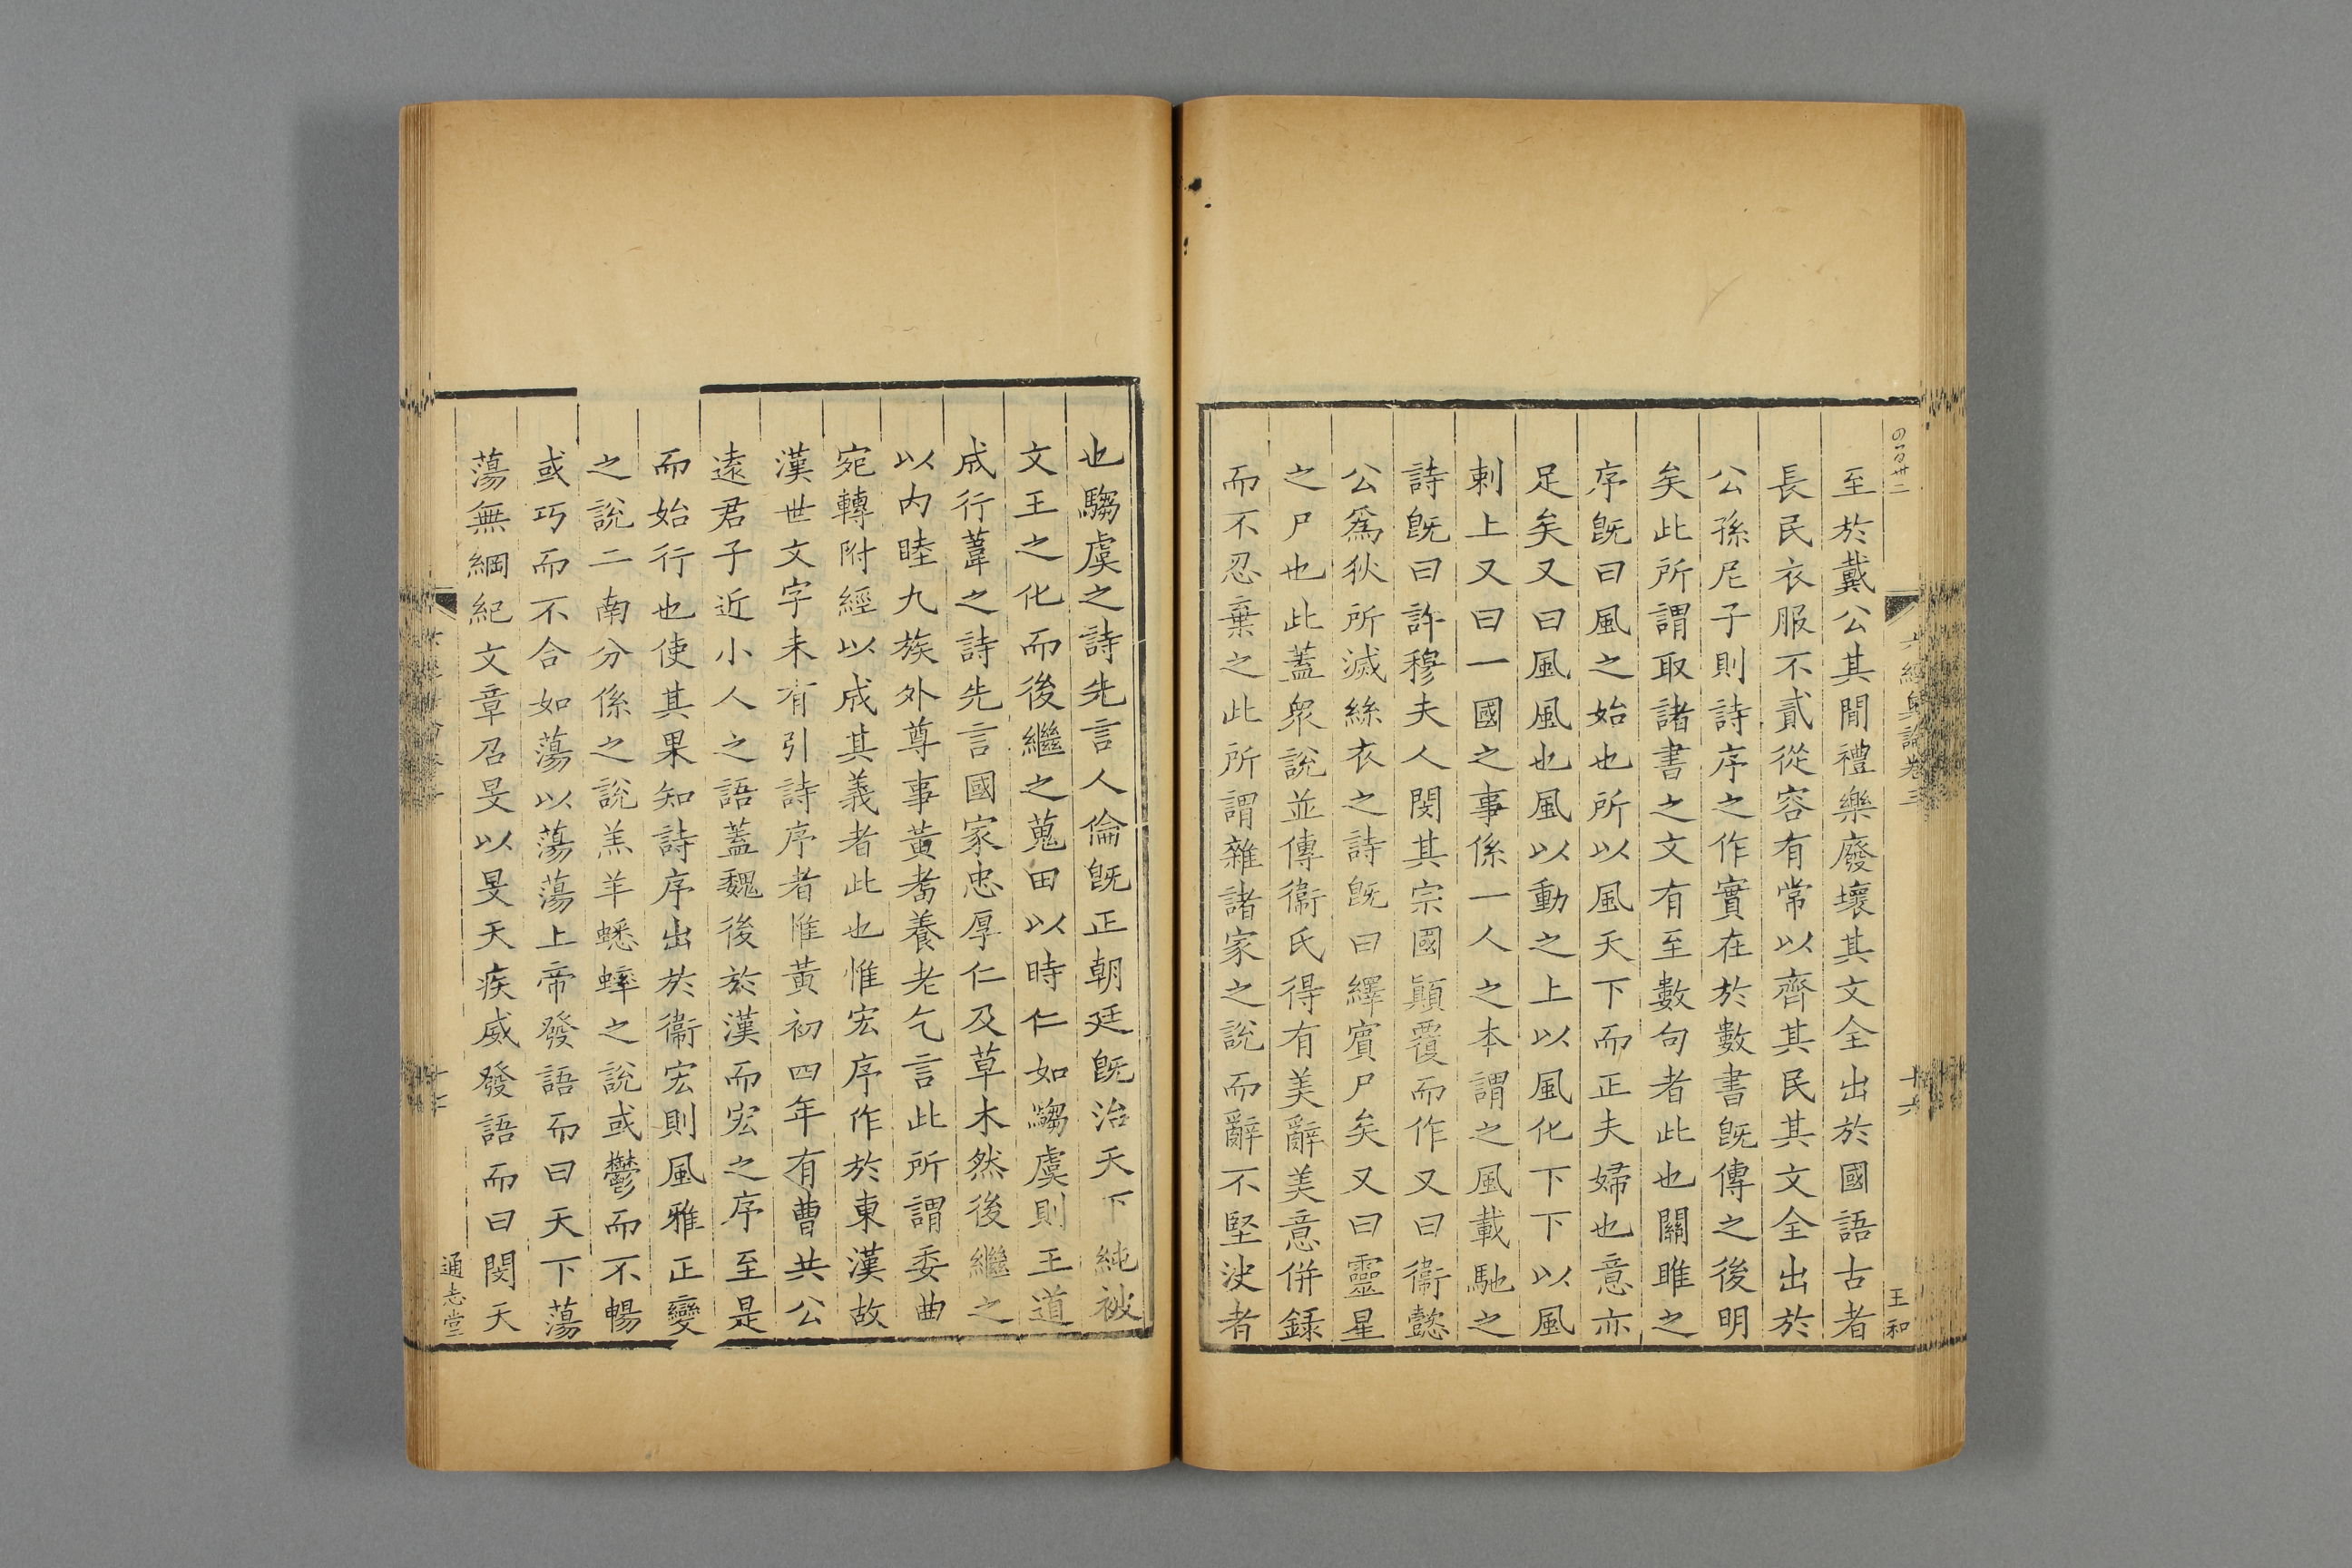 至於戴公其閒禮樂廢壞其文全出於國語古者
長民衣服不貳從容有常以齊其民其文全出於
公孫尼子則詩序之作實在於數書旣傳之後明
矣此所謂取諸書之文有至數句者此也關雎之
序旣曰風之始也所以風天下而正夫婦也意亦
足矣又曰風風也風以動之上以風化下下以風
刺上又曰一國之事係一人之本謂之風載馳之
詩旣曰許穆夫人閔其宗國顚覆而作又曰衞懿
公爲狄所滅絲衣之詩旣曰繹賓尸矣又曰靈星
之尸也此蓋衆說並傳衞氏得有美辭美意併録
而不忍棄之此所謂雜諸家之說而辭不堅決者
也騶虞之詩先言人倫旣正朝廷旣治天下純被
文王之化而後繼之蒐田以時仁如騶虞則王道
成行葦之詩先言國家忠厚仁及草木然後繼之
以内睦九族外尊事黃耈養老乞言此所謂委曲
宛轉附經以成其義者此也惟宏序作於東漢故
漢世文字未有引詩序者惟黃初四年有曹共公
遠君子近小人之語蓋魏後於漢而宏之序至是
而始行也使其果知詩序出於衞宏則風雅正變
之說二南分係之說羔羊蟋蟀之說或鬱而不暢
或巧而不合如蕩以蕩蕩上帝發語而曰天下蕩
蕩無綱紀文章召旻以旻天疾威發語而曰閔天
六經奥論卷三
十六
王和
通志堂